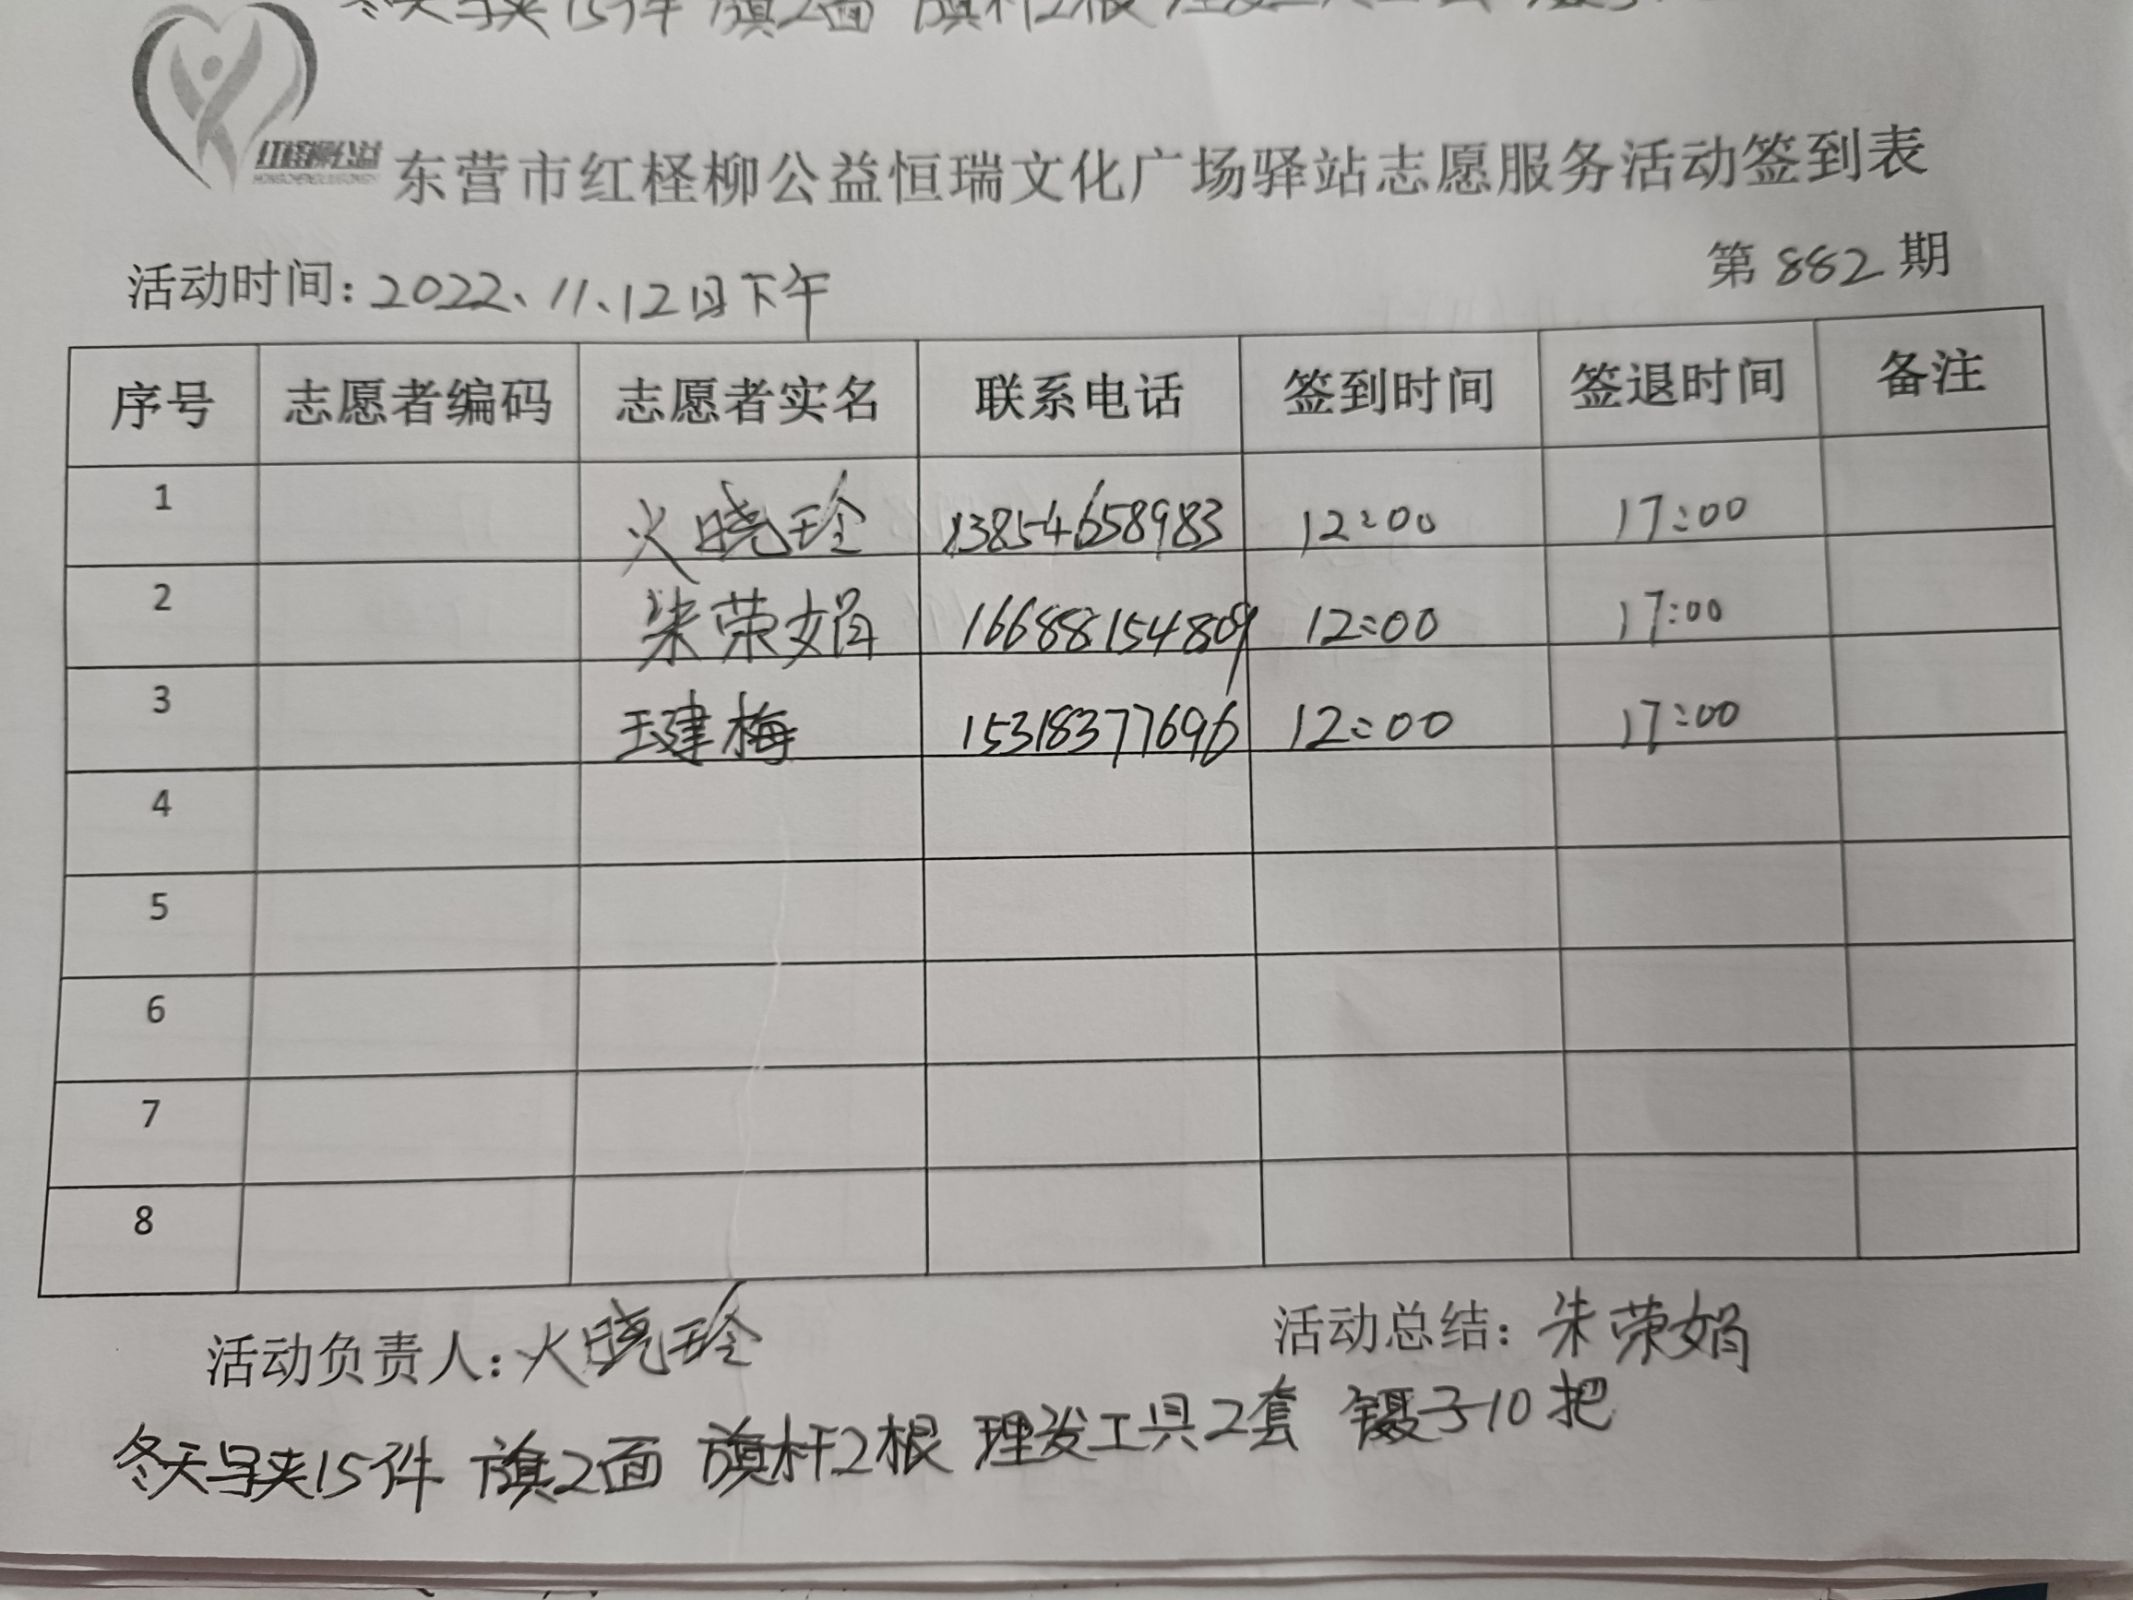 冬天号夹15件 旗2面 旗杆2根 理发工具2套
红柽柳公益
东营市红柽柳公益恒瑞文化广场驿站志愿服务活动签到表
活动时间：2022、11、12日下午 第882期
序号 志愿者编码 志愿者实名 联系电话 签到时间 签退时间 备注
1 火晓玲 13854658983 12:00 17:00
2 朱荣娟 16688154809 12:00 17:00
3 王建梅 15318377696 12:00 17:00
4
5
6
7
8
活动负责人：火晓玲 活动总结：朱荣娟
冬天号夹15件 旗2面 旗杆2根 理发工具2套 镊子10把